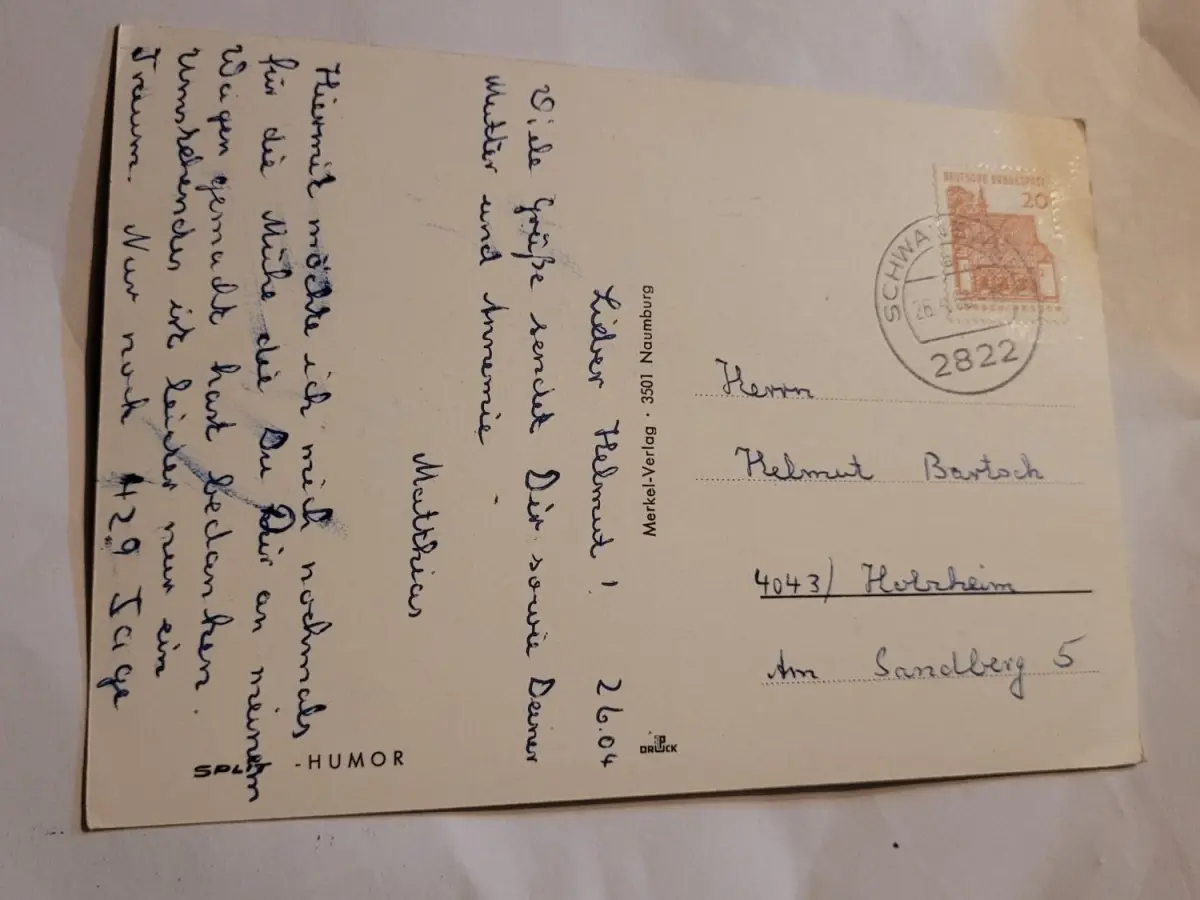 Hiermit möchte ich mich nochmals
für die Mühe die Du Dir an meinem
Wagen gemacht hast bedanken.
Umstehendes ist leider nur ein
Traum. Nur noch 429 Tage
Lieber Helmut! 26.04
Viele Grüße sendet Dir sowie Deiner
Mutter und Annemie
Matthias
-HUMOR
Merkel-Verlag · 3501 Naumburg
DRUCK
DEUTSCHE BUNDESPOST
20
SCHWA
26.
2822
Herrn
Helmut Bartsch
4043/ Holzheim
Am Sandberg 5